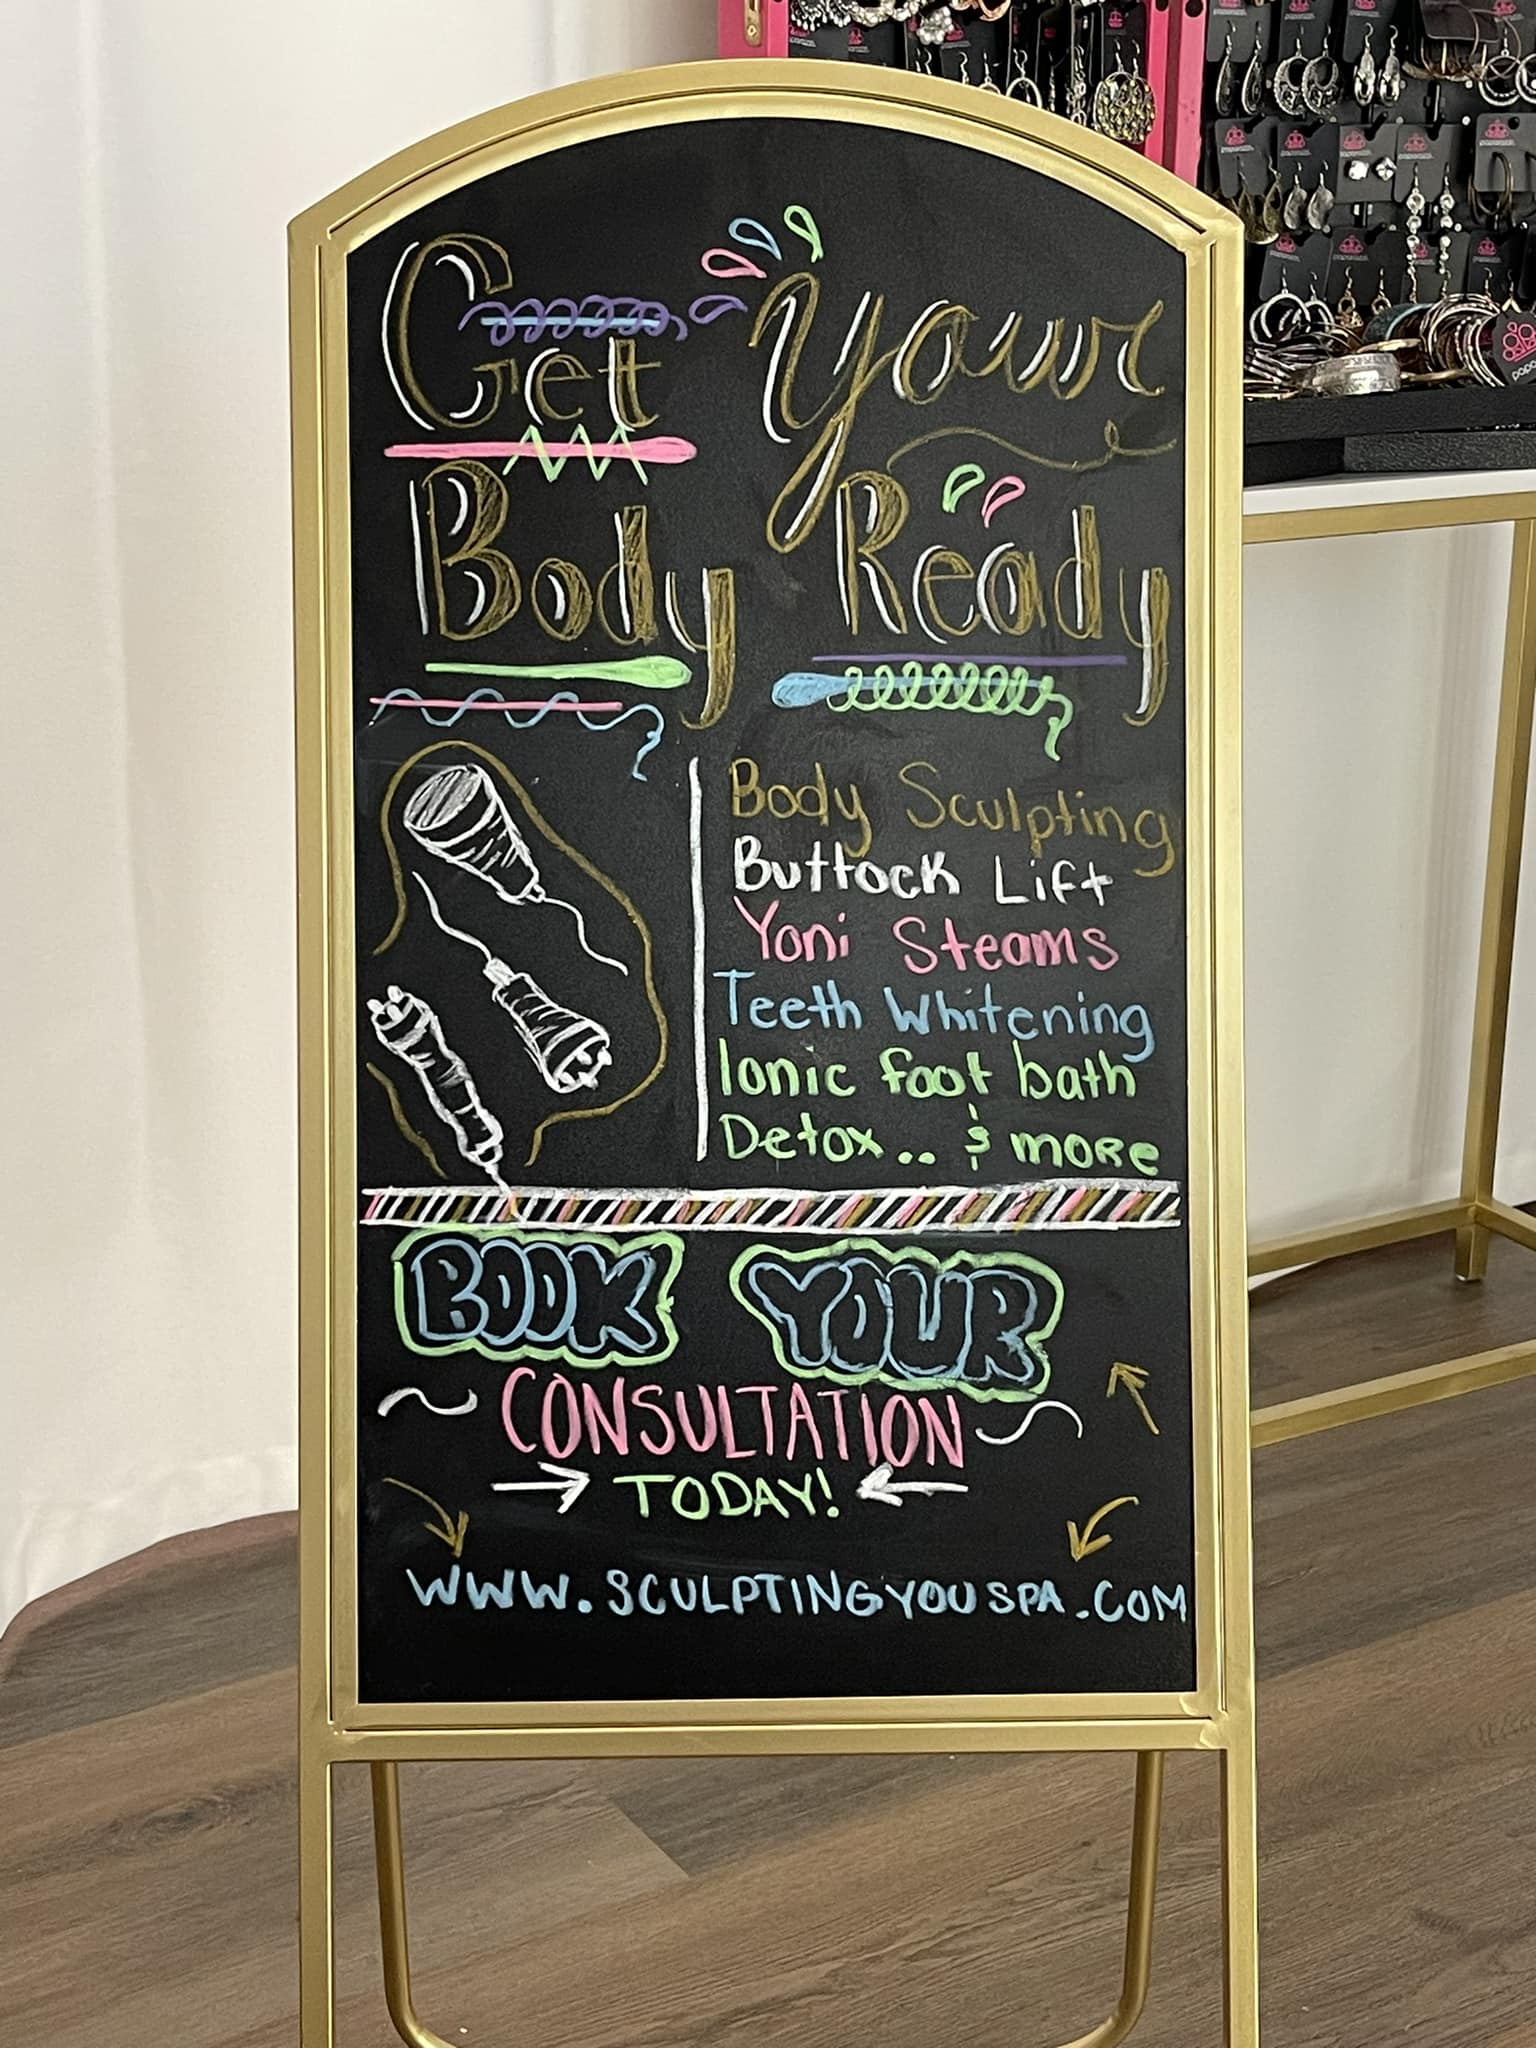 Get Your
Body Ready
Body Sculpting
Buttock Lift
Yoni Steams
Teeth Whitening
Ionic foot bath
Detox.. & more
BOOK YOUR
CONSULTATION
TODAY!
WWW.SCULPTINGYOUSPA.COM